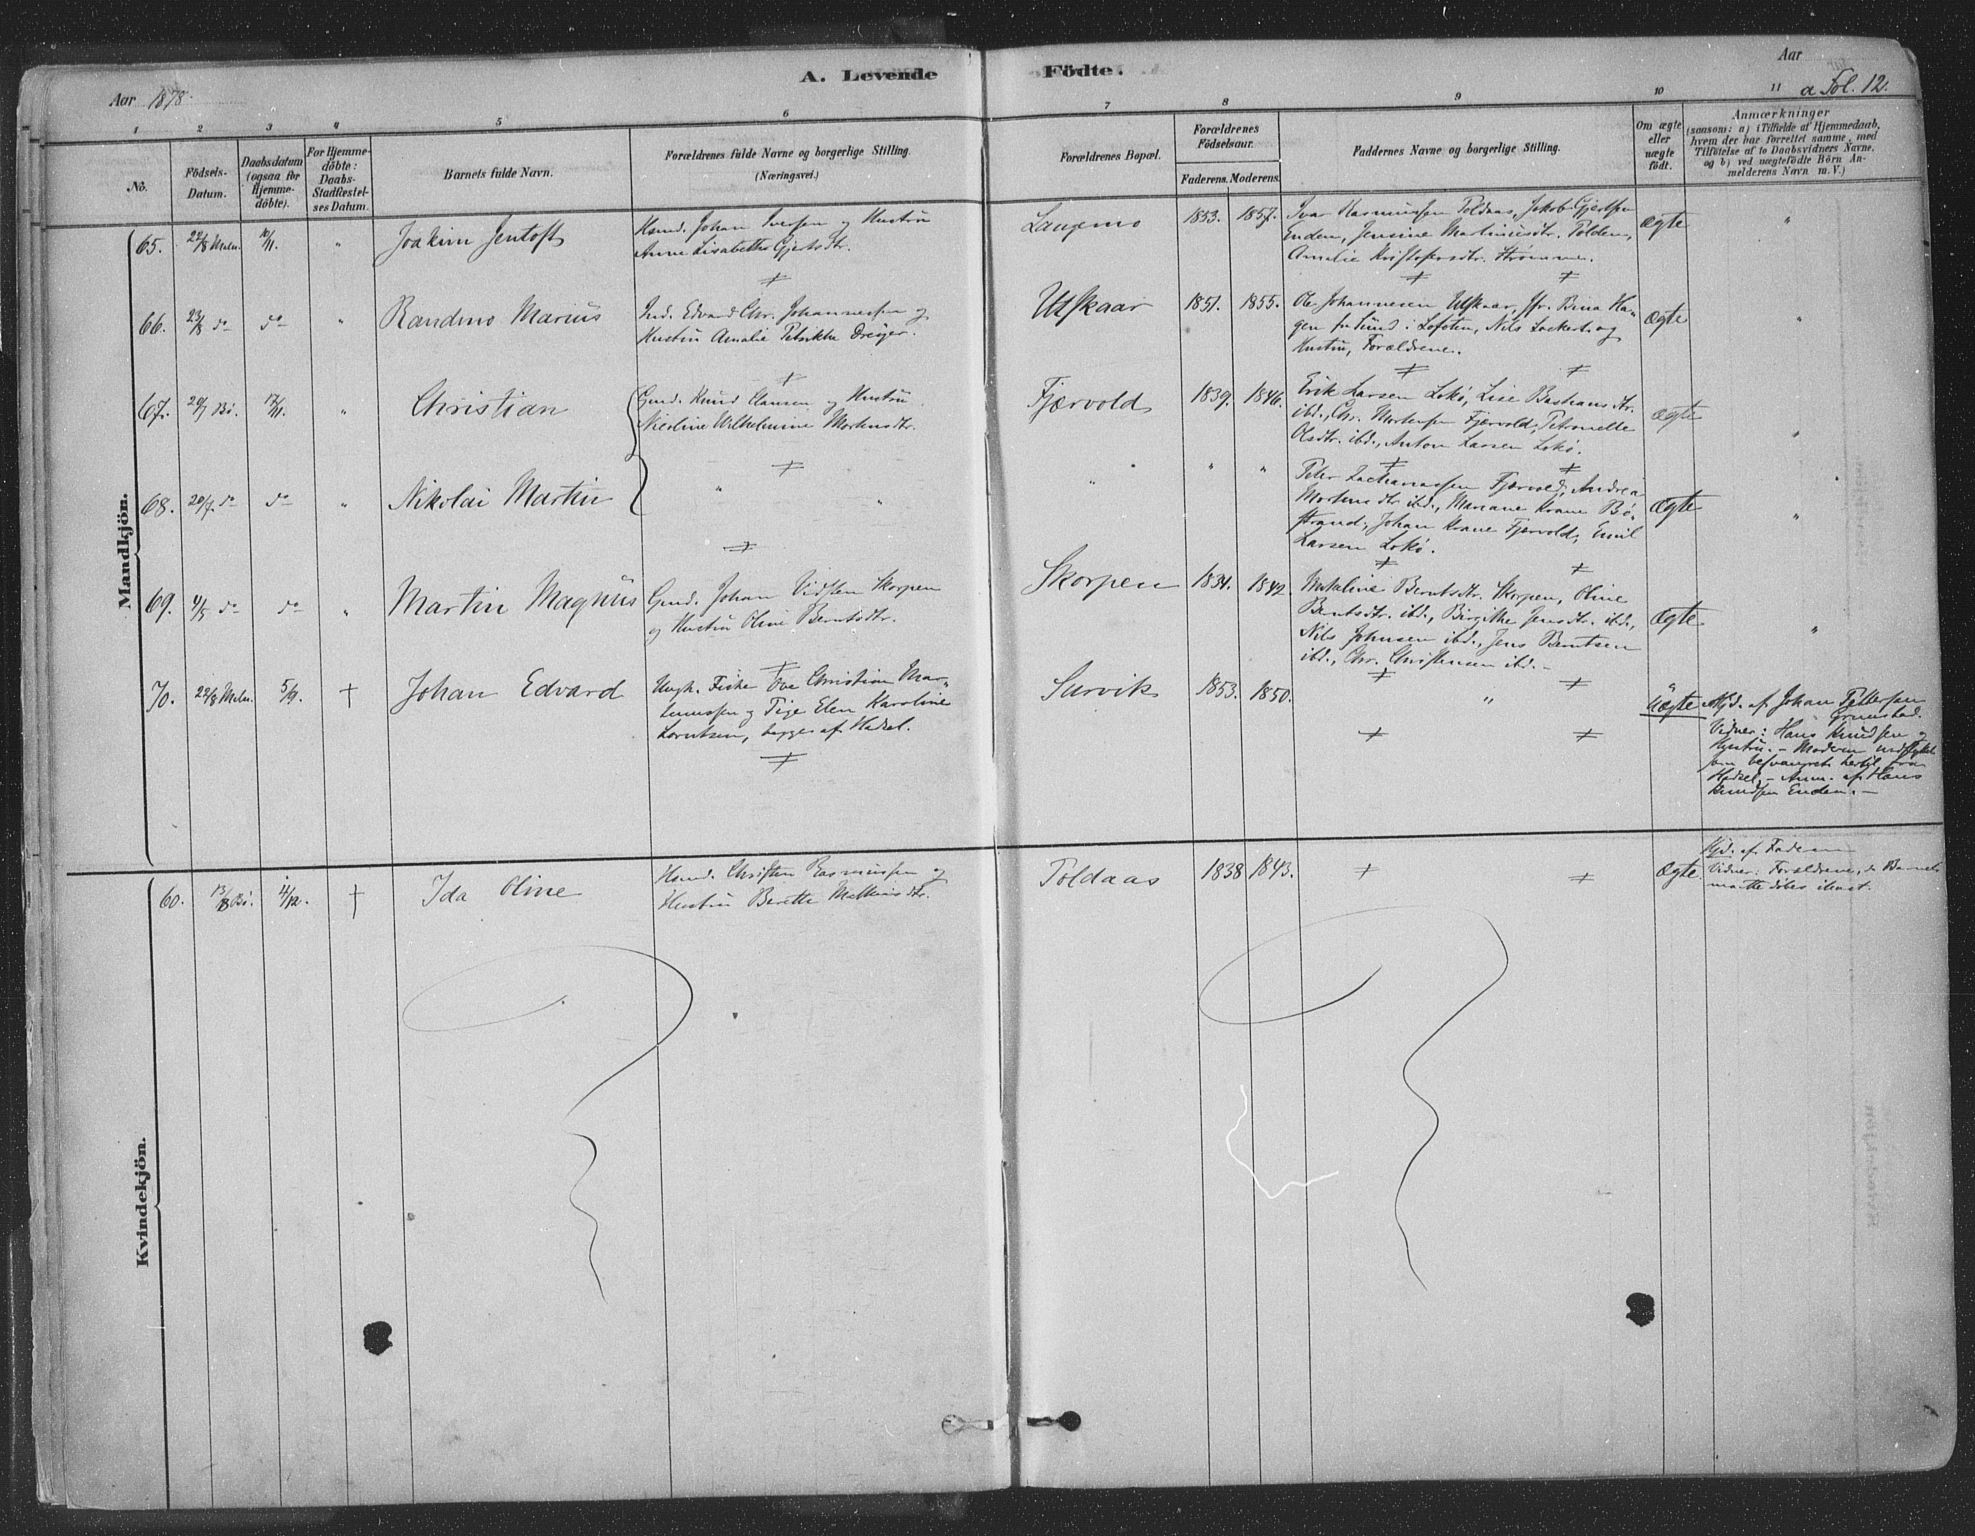 A. Levende Födte.
Aar 1878.
Aar
a Fol. 12.
1 2 3 4 5 6 7 8 9 10 11
No.
Födsels-
Datum.
Daabsdatum
(ogsaa for
Hjemme-
döbte).
For Hjemme-
döbte:
Daabs-
Stadfæstel-
ses Datum.
Barnets fulde Navn.
Forældrenes fulde Navne og borgerlige Stilling.
(Næringsvei.)
Forældrenes Bopæl.
Forældrenes
Födselsaar.
Faderens. Moderens.
Faddernes Navne og borgerlige Stilling.
Om ægte
eller
uægte
födt.
Anmærkninger
(saasom: a) i Tilfælde af Hjemmedaab,
hvem der har forrettet samme, med
Tilföielse af to Daabsvidners Navne,
og b) ved uægtefödte Börn An-
melderens Navn m. V.)
Mandkjön.
65. 22/8 Meln. 10/11. " Joakim Jentoft
Hsmd. Johan Iversen og Hustru
Anne Lisabethe Gjertsdtr.
Langemo 1853. 1857.
Ivar Rasmussen Toldaas, Jakob Gjertsen
Enden, Jensine Martinusdtr. Tolden,
Amalie Kristofersdtr. Strømme.
Ægte "
66. 23/8 do do " Randmo Marius
Ind. Edvard Chr. Johannessen og
Hustru Amalie Petrikke Dreyer.
Utskaar 1851. 1855.
Ole Johannesen Utskaar, Jfr. Bina Ha-
gen fr Sund i Lofoten, Nils Lockert og
Hustru, Forældrene.
Ægte "
67. 20/7 Bö. 17/11. " Christian
Gmd. Knud Clausen og Hustru
Nicoline Wilhelmine Mortensdtr.
Fjærvold 1839. 1846.
Erik Larsen Lokö, Lise Bastiansdtr.
ibd., Chr. Mortensen Fjærvold, Petronelle
Olsdtr. ibd., Anton Larsen Lokö.
Ægte "
68. 20/7 do do " Nikolai Martin
" "
" " "
Peter Zachariassen Fjærvold, Andrea
Mortensdtr. ibd., Mariane Krane Bö-
strand, Johan Krane Fjervold, Emil
Larsen Lokö.
Ægte "
69. 4/5 do do " Martin Magnus
Gmd. Johan Vidsten Skorpen
og Hustru Oline Berntsdtr.
Skorpen 1831. 1842
Mataline Berntsdtr. Skorpen, Oline
Berntsdtr. ibd., Birgithe Jensdtr. ibd.,
Nils Johnsen ibd., Jens Berntsen
ibd., Chr. Christensen ibd. –
Ægte "
70. 22/8 Meln. 5/9. † Johan Edvard
Ungk. Fisker Ove Christian Mar-
og Pige Elen Karoline
Lorntsen, begge af Hadsel.
Survik 1853. 1850.
"
Uægte
Hjd. af Johan Pettersen
Grunstad.
Vidner: Hans Knudsen og
Hustru. – Moderen
som besvangret hertil fra
Hadsel. – Anm. af Hans
Knudsen Enden. –
Kvindekjön.
60. 13/8 Bö. 4/12. † Ida Oline
Hsmd. Christen Rasmussen og
Hustru Berette Mathiasdtr.
Toldaas 1838 1843.
Ægte
Hjd. af Faderen
Vidner: Forældrene, da Barnet
maatte döbes ihast.